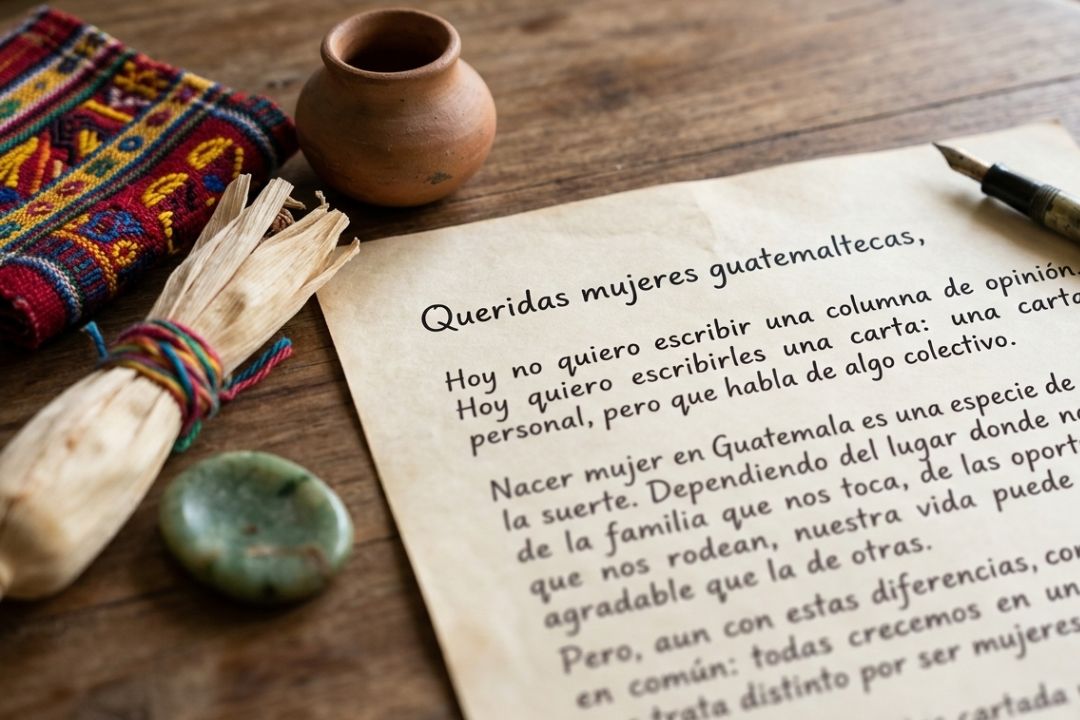 Queridas mujeres guatemaltecas,
Hoy no quiero escribir una columna de opinión.
Hoy quiero escribirles una carta: una carta
personal, pero que habla de algo colectivo.
Nacer mujer en Guatemala es una especie de
la suerte. Dependiendo del lugar donde
de la familia que nos toca, de las
que nos rodean, nuestra vida puede
agradable que la de otras.
Pero, aun con estas diferencias,
en común: todas crecemos en
trata distinto por ser mujeres